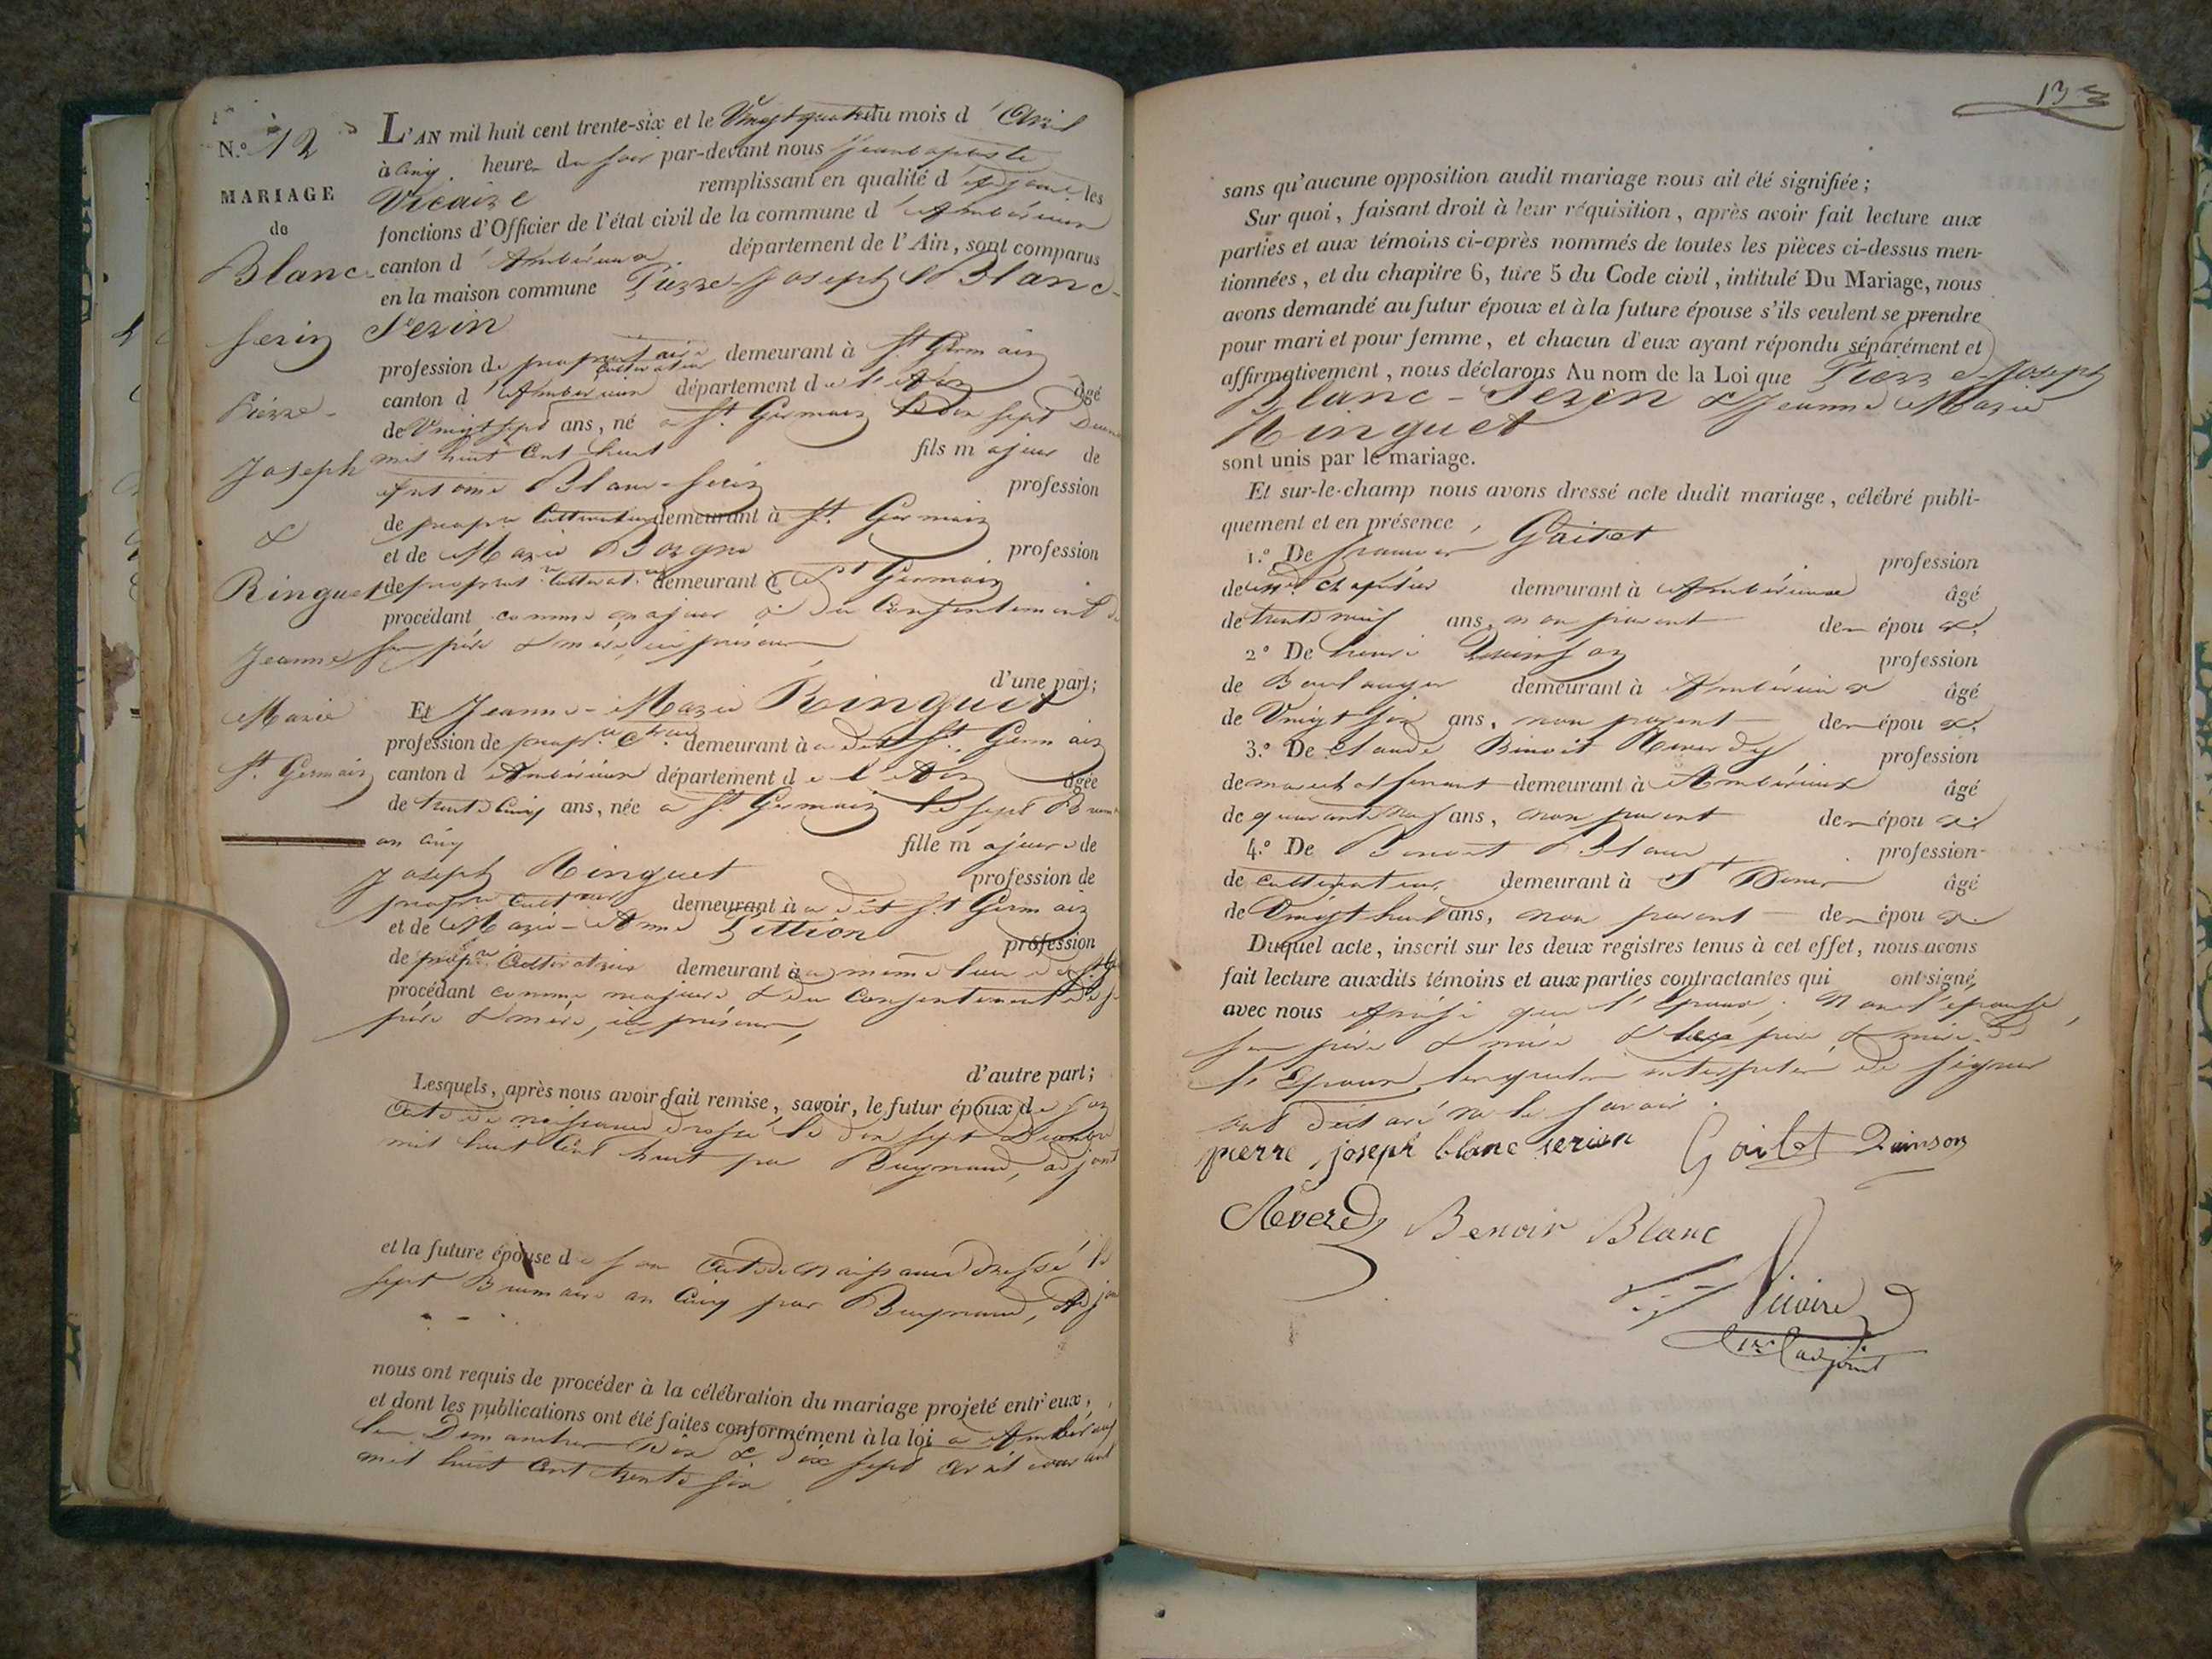 N.º 12
MARIAGE
de
Blanc-
Serin
Pierre-
Joseph
&
Ringuet
Jeanne
Marie
St. Germain
L'AN mil huit cent trente-six et le Vingt quatre du mois d'Avril
à Cinq heures du soir par-devant nous Jean baptiste
Vicaire remplissant en qualité d'adjoint les
fonctions d'Officier de l'état civil de la commune d'Ambérieux
canton d'Ambérieux département de l'Ain, sont comparus
en la maison commune Pierre-Joseph Blanc-
Serin
profession de propriétaire cultivateur demeurant à St. Germain
canton d'Ambérieux département de l'Ain âgé
de Vingt sept ans, né à St. Germain le dix sept
mil huit Cent huit fils majeur de
Antoine Blanc-Serin profession
de propre. Cultivateur demeurant à St. Germain
et de Marie profession
de demeurant à St Germain
procédant comme majeur & du Consentement de
ses père & mère, ici présens
d'une part;
Et Jeanne-Marie Ringuet
profession de propre. demeurant à a dit St. Germain
canton d'Ambérieux département de l'Ain âgée
de trente Cinq ans, née à St. Germain le sept Brum
an Cinq fille majeure de
Joseph Ringuet profession de
propre. demeurant à a dit St. Germain
et de Marie-Anne Tittion profession
de propre. Cultivatrice demeurant à même lieu de
procédant comme majeure & du Consentement de ses
père & mère, ici présens,
d'autre part;
Lesquels, après nous avoir fait remise, savoir, le futur époux de son
acte de naissance dressé le dix sept Décembre
mil huit Cent huit par Buynand, adjoint
et la future épouse de son acte de naissance dressé le
sept Brumaire an Cinq par Buynand, Adjoint
nous ont requis de procéder à la célébration du mariage projeté entr'eux,
et dont les publications ont été faites conformément à la loi à Ambérieux
les Dimanches Dix & dix sept avril courant
mil huit Cent trente six
133
sans qu'aucune opposition audit mariage nous ait été signifiée;
Sur quoi, faisant droit à leur réquisition, après avoir fait lecture aux
parties et aux témoins ci-après nommés de toutes les pièces ci-dessus men-
tionnées, et du chapitre 6, titre 5 du Code civil, intitulé Du Mariage, nous
avons demandé au futur époux et à la future épouse s'ils veulent se prendre
pour mari et pour femme, et chacun d'eux ayant répondu séparément et
affirmativement, nous déclarons Au nom de la Loi que Pierre-Joseph
Blanc-Serin & Jeanne Marie
Ringuet
sont unis par le mariage.
Et sur-le-champ nous avons dressé acte dudit mariage, célébré publi-
quement et en présence,
1.º De Gailet profession
de chapelier demeurant à Ambérieux âgé
de trente neuf ans, non parent des époux.
2º De Quinson profession
de Boulanger demeurant à Ambérieux âgé
de Vingt six ans, non parent des époux.
3.º De Claude Benoit Reverdy profession
de demeurant à Ambérieux âgé
de quarante neuf ans, non parent des époux.
4.º De Benoit Blanc profession
de cultivateur demeurant à St Denis âgé
de Vingt huit ans, non parent des époux.
Duquel acte, inscrit sur les deux registres tenus à cet effet, nous avons
fait lecture auxdits témoins et aux parties contractantes qui ont signé
avec nous Ainsi que l'Epoux; Non l'épouse,
ses père & mère & les père & mère de
l'Epoux, lesquels interpellés de signer
ont déclaré ne le savoir.
pierre joseph blanc serion Gailet Quinson
Reverdy Benoir Blanc
Vicaire
adjoint